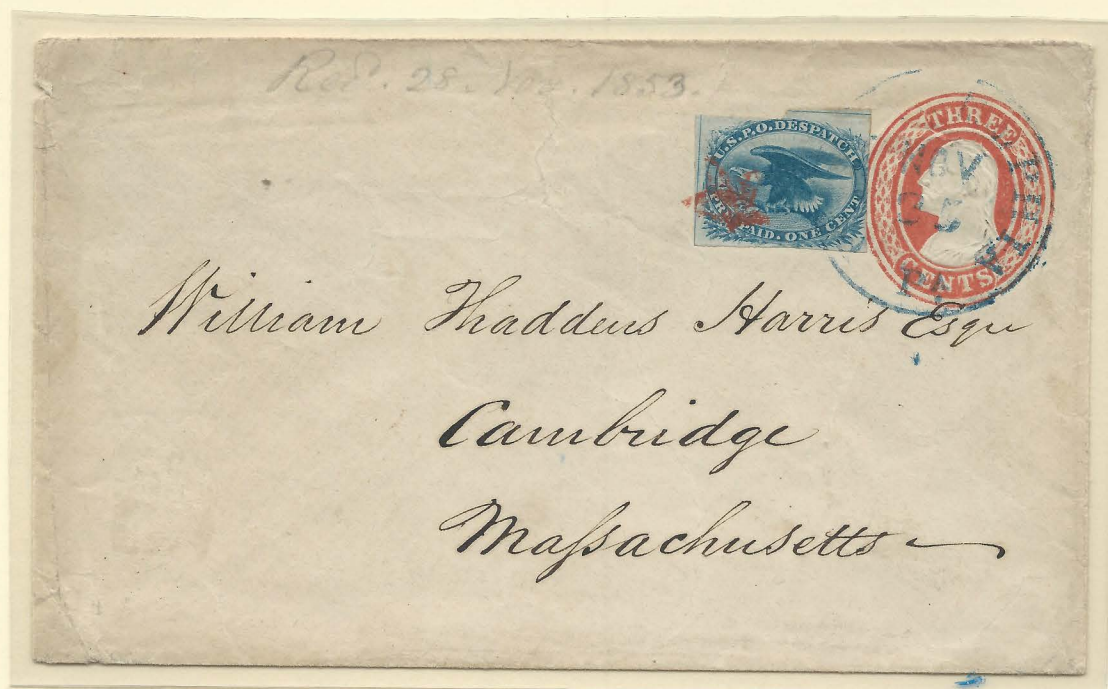 Rec'd. 28. Nov. 1853.
U.S.P.O. DESPATCH
PRE-PAID. ONE CENT.
THREE
CENTS
PHILA
NOV
William Thaddeus Harris Esqr
Cambridge
Maſsachusetts